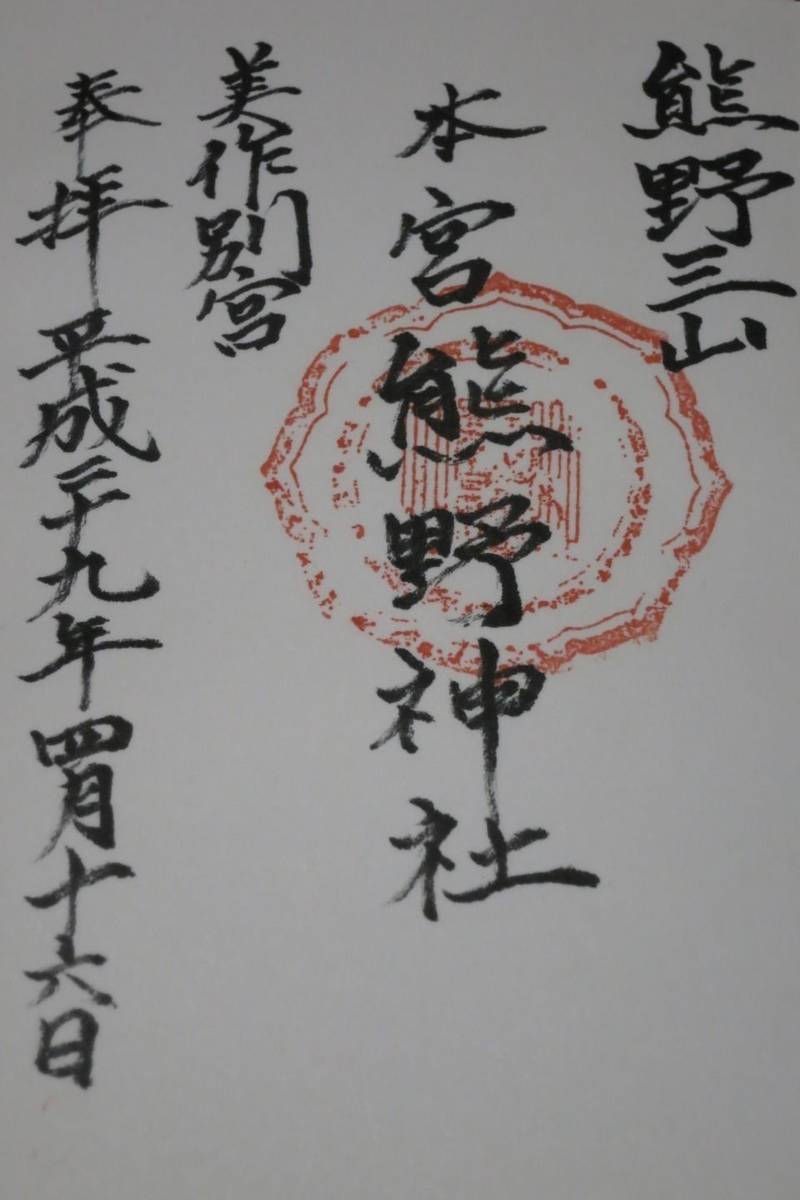 熊野三山
本宮熊野神社
美作別宮
奉拝 平成二十九年四月十六日